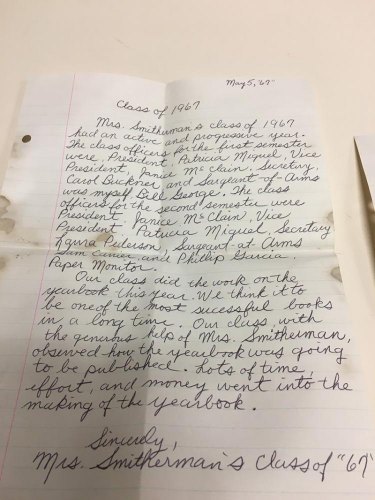 May 5, "67"
Class of 1967
Mrs. Smitherman's class of 1967
had an active and progressive year.
The class officers for the first semester
were, President, Patricia Miguel, Vice
President, Janice McClain, Secretary,
Carol Buckner, and Sargeant-of-Arms
was myself Bill George. The class
officers for the second semester were
President, Janice McClain, Vice
President, Patricia Miguel, Secretary
Peterson, Sargeant-at Arms
Sam and Phillip Garcia.
Paper Monitor.
Our class did the work on the
yearbook this year. We think it to
be one of the most sucessful books
in a long time. Our class, with
the generous help of Mrs. Smitherman,
observed how the yearbook was going
to be published. Lots of time,
effort, and money went into the
making of the yearbook.
Sincerly,
Mrs. Smitherman's Class of "67"